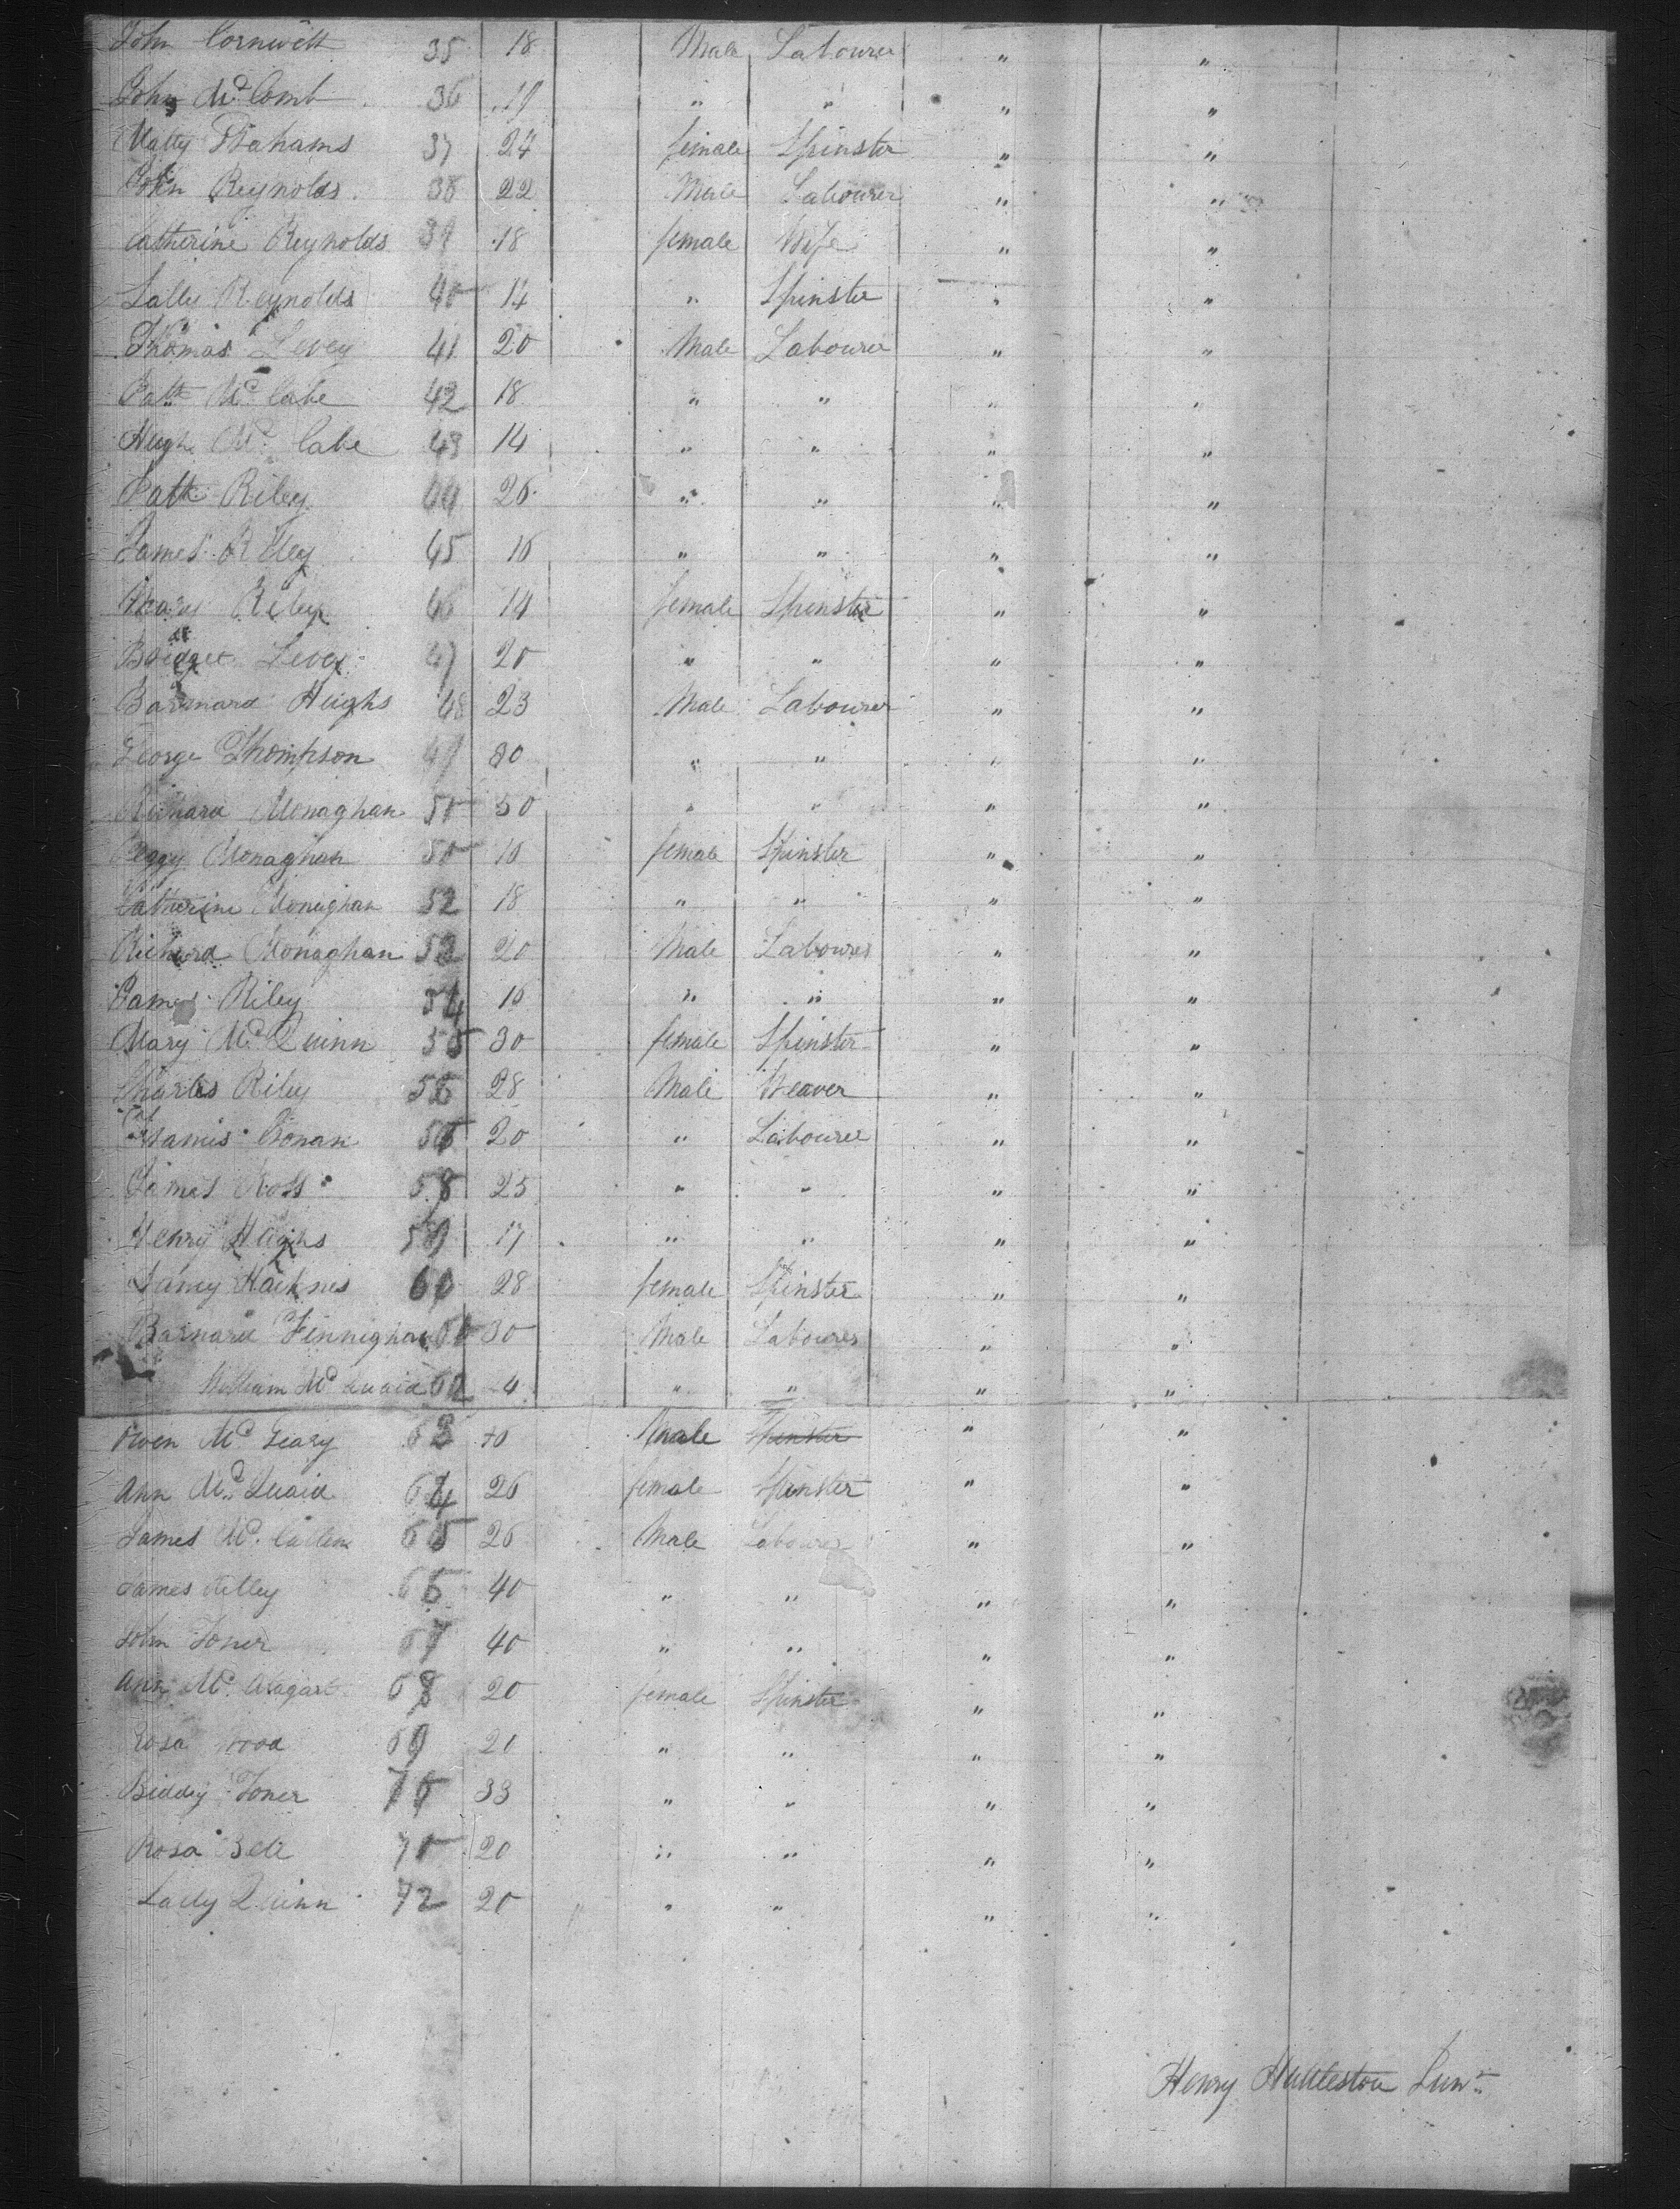 John Cornwell 35 18 Male Labourer " "
John Mc Comb 36 19 " " " "
Matty Grahams 37 24 female Spinster " "
John Reynolds 38 22 Male Labourer " "
Catherine Reynolds 39 18 female Wife " "
Sally Reynolds 40 14 " Spinster " "
Thomas Levey 41 20 Male Labourer " "
Patk Mc Cabe 42 18 " " " "
Hugh Mc Cabe 43 14 " " " "
Patk Riley 44 26 " " " "
James Riley 45 16 " " " "
Riley 46 14 female Spinster " "
Bridget Levey 47 20 " " " "
Barnard Heighs 48 23 Male Labourer " "
George Thompson 49 30 " " " "
Richard Monaghan 50 50 " " " "
Peggy Monaghan 50 16 female Spinster " "
Catherine Monaghan 52 18 " " " "
Richard Monaghan 53 20 Male Labourer " "
James Riley 54 16 " " " "
Mary Mc Quinn 55 30 female Spinster " "
Charles Riley 56 28 Male Weaver " "
Conan 20 " Labourer " "
James Ross 58 25 " " " "
Henry 59 17 " " " "
60 28 female Spinster " "
Barnard Finnighan 30 Male Labourer " "
William Mc Quaid 62 4 " " " "
Owen Mc Geary 63 40 Male Spinster " "
Ann Mc Quaid 64 26 female Spinster " "
James Mc 65 26 Male Labourer " "
James 66 40 " " " "
John Toner 67 40 " " " "
Ann Mc 68 20 female Spinster " "
Rosa 69 20 " " " "
Biddy Toner 70 33 " " " "
Rosa 20 " " " "
Quinn 72 20 " " " "
Henry Junr